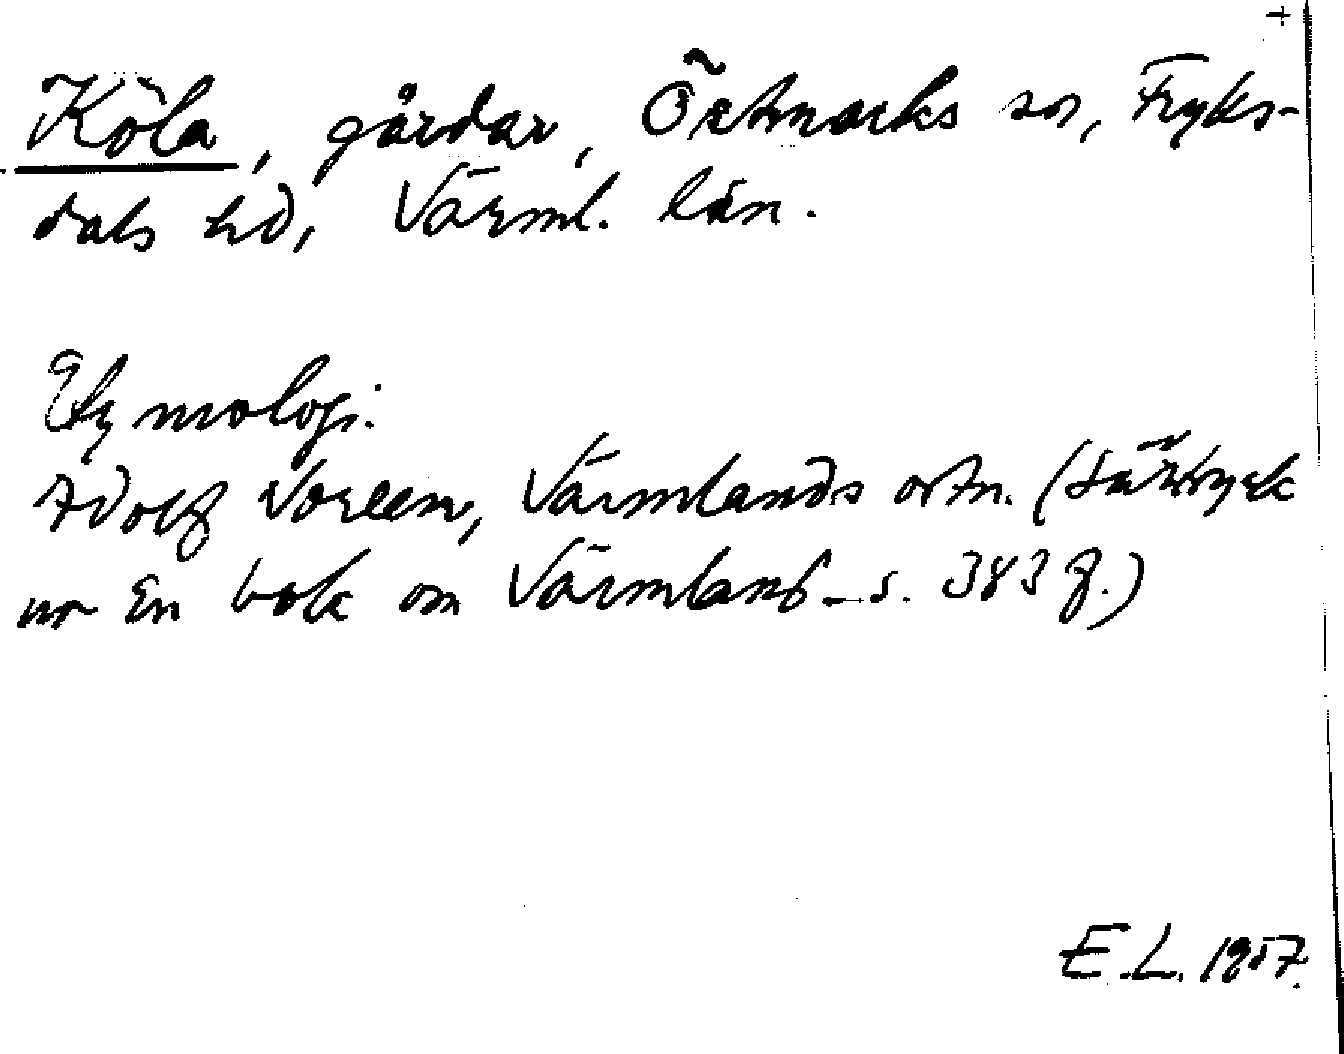 +
Köla, gårdar, Östmarks sn, Fryks-
dals hd, Värml. län.
Etymologi.
Adolf Noreen, Värmlands ortn. (särtryck
ur En bok om Värmland s. 383 f.)
E.L. 1957.